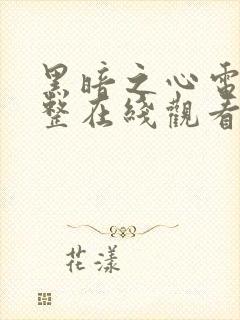 黑暗之心電
整在綫觀看
花漾